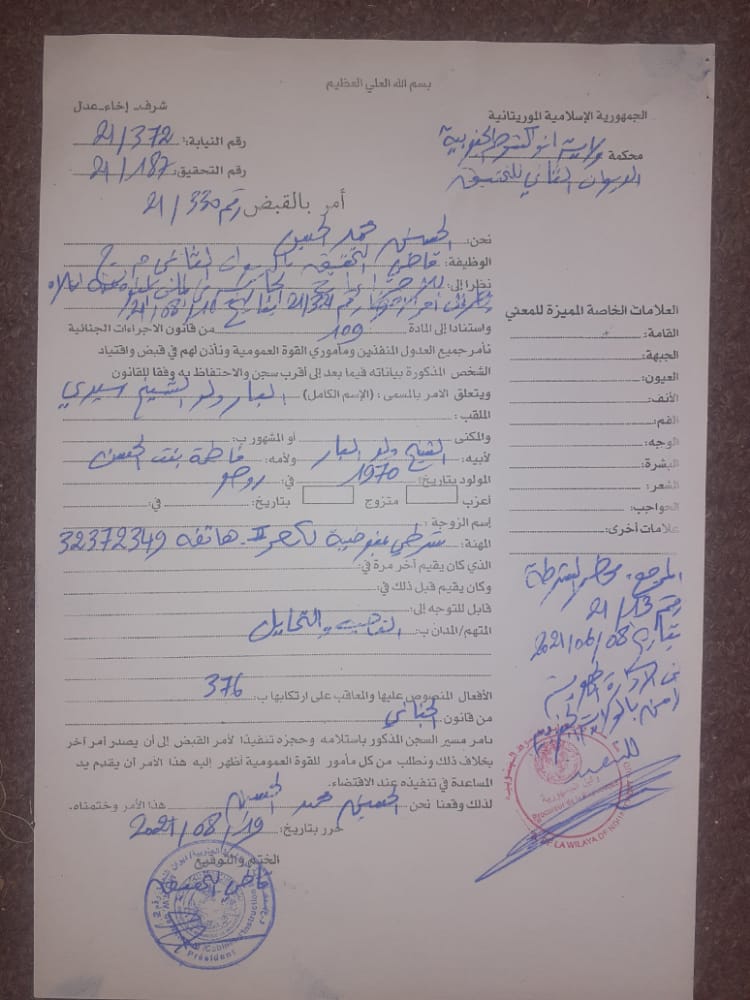 بسم الله العلي العظيم
الجمهورية الإسلامية الموريتانية
شرف - إخاء - عدل
محكمة ولاية انواكشوط الجنوبية
الديوان الثاني للتحقيق
رقم النيابة: 21/372
رقم التحقيق: 21/187
أمر بالقبض رقم 330/21
نحن: الحسين محمد الحسين
الوظيفة: قاضي التحقيق بالديوان الثاني
نظرا إلى:
21/08/
واستنادا إلى المادة 109 من قانون الاجراءات الجنائية
نأمر جميع العدول المنفذين ومأموري القوة العمومية ونأذن لهم في قبض واقتياد
الشخص المذكورة بياناته فيما بعد إلى أقرب سجن والاحتفاظ به وفقا للقانون
ويتعلق الامر بالمسمى : (الإسم الكامل) العبار ولد الشيخ سيدي
الملقب :
والمكنى أو المشهور ب:
لأبيه: الشيخ ولد العبار ولأمه: فاطمة بنت الحسن
المولود بتاريخ: 1970 في: روصو
أعزب متزوج بتاريخ: في:
إسم الزوجة :
المهنة: شرطي بمفوضية لكصر هاتفه 32372349
الذي كان يقيم آخر مرة في:
وكان يقيم قبل ذلك في:
قابل للتوجه إلى:
المتهم/المدان ب: النصب والتحايل
الأفعال المنصوص عليها والمعاقب على ارتكابها ب: 376
من قانون: الجنائي
نامر مسير السجن المذكور باستلامه وحجزه تنفيذا لأمر القبض إلى أن يصدر أمر آخر
بخلاف ذلك ونطلب من كل مأمور للقوة العمومية أظهر إليه هذا الأمر أن يقدم يد
المساعدة في تنفيذه عند الاقتضاء.
لذلك وقعنا نحن: الحسين محمد الحسين هذا الأمر وختمناه.
حرر بتاريخ: 19/08/2021
الختم والتوقيع
قاضي التحقيق
Président
العلامات الخاصة المميزة للمعني
القامة:
الجبهة:
العيون:
الأنف:
الفم:
الوجه:
البشرة:
الشعر:
الحواجب:
علامات أخرى:
المرجع: محضر الشرطة
رقم 13/21
بتاريخ 08/06/2021
عن الادارة الجهوية
للتنفيذ
DE LA WILAYA DE